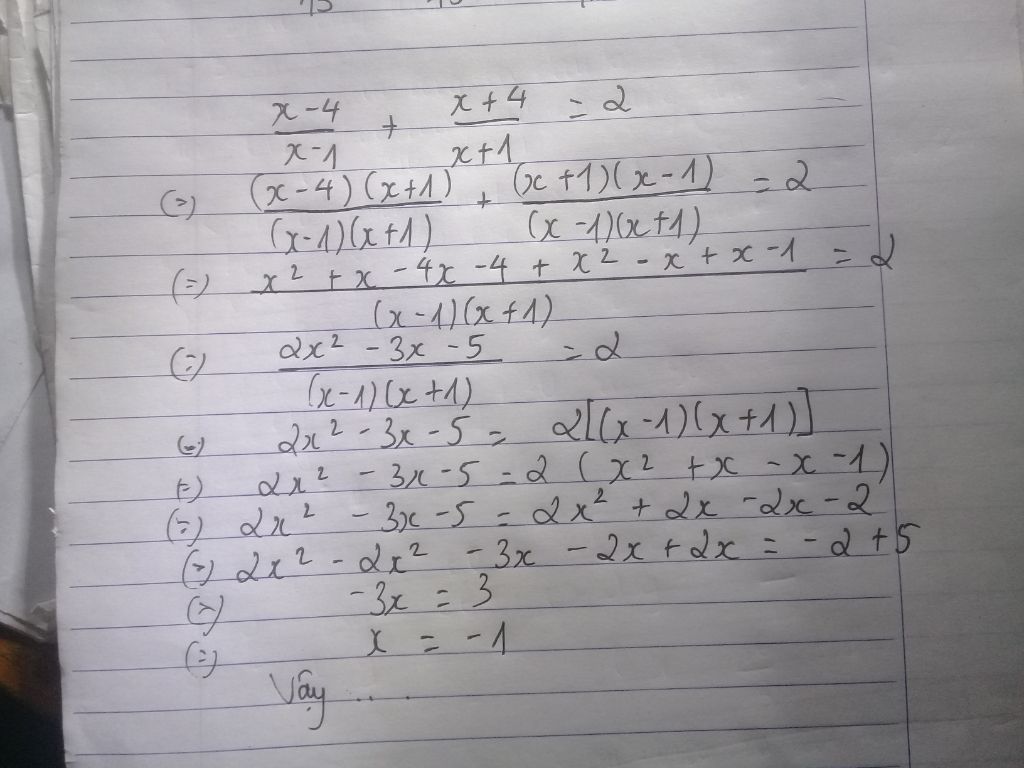 x-4/x-1 + x+4/x+1 = 2
(=) (x-4)(x+1)/(x-1)(x+1) + (x+1)(x-1)/(x-1)(x+1) = 2
(=) x² + x - 4x - 4 + x² - x + x - 1/(x-1)(x+1) = 2
(=) 2x² - 3x - 5/(x-1)(x+1) = 2
(=) 2x² - 3x - 5 = 2[(x-1)(x+1)]
(=) 2x² - 3x - 5 = 2 (x² + x - x - 1)
(=) 2x² - 3x - 5 = 2x² + 2x - 2x - 2
(=) 2x² - 2x² - 3x - 2x + 2x = -2 + 5
(=) -3x = 3
(=) x = -1
Vậy .....